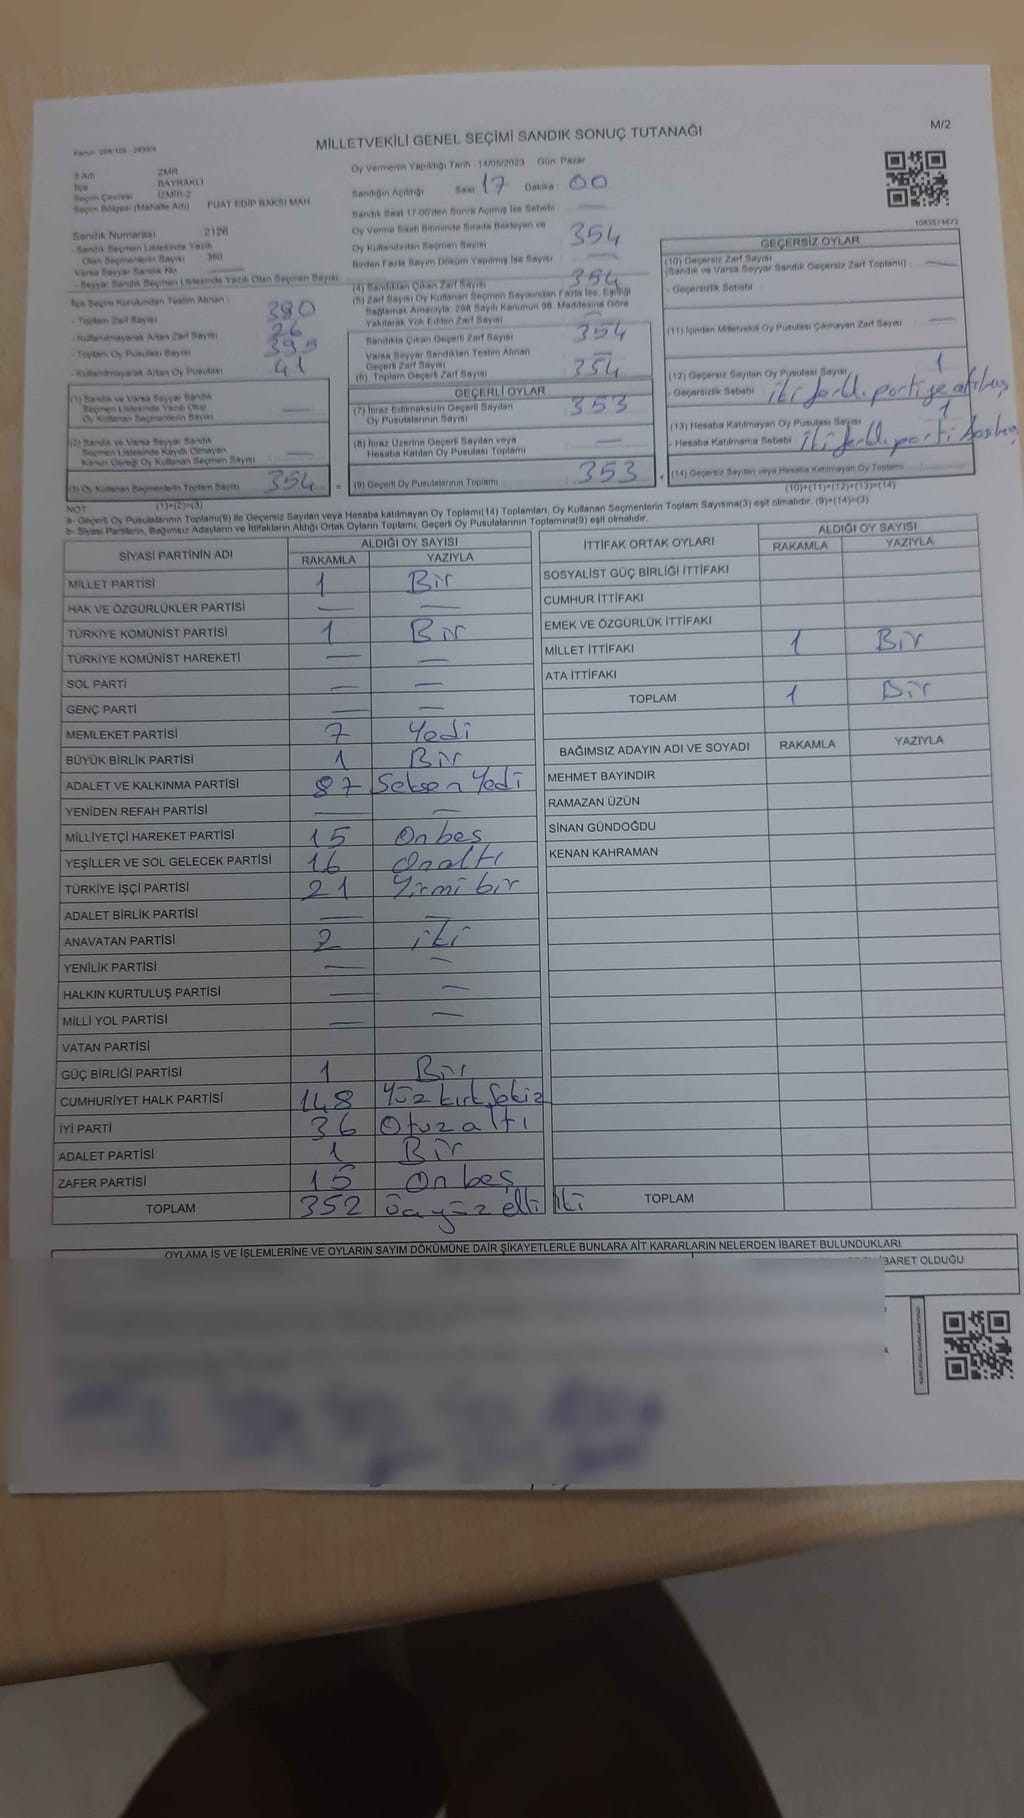 M/2
MİLLETVEKİLİ GENEL SEÇİMİ SANDIK SONUÇ TUTANAĞI
İl Adı ZMR
İlçe BAYRAKLI
Seçim Çevresi İZMİR-2
Seçim Bölgesi (Mahalle Adı) FUAT EDİP BAKSI MAH
Sandık Numarası 2126
- Sandık Seçmen Listesinde Yazılı
Olan Seçmenlerin Sayısı 380
Varsa Seyyar Sandık No
- Seyyar Sandık Seçmen Listesinde Yazılı Olan Seçmen Sayısı
İlçe Seçim Kurulundan Teslim Alınan :
- Toplam Zarf Sayısı 380
- Kullanılmayarak Artan Zarf Sayısı 26
- Toplam Oy Pusulası Sayısı 395
- Kullanılmayarak Artan Oy Pusulası 41
(1) Sandık ve Varsa Seyyar Sandık
Seçmen Listesinde Yazılı Olup
Oy Kullanan Seçmenlerin Sayısı —
(2) Sandık ve Varsa Seyyar Sandık
Seçmen Listesinde Kayıtlı Olmayan
Kanun Gereği Oy Kullanan Seçmen Sayısı —
(3) Oy Kullanan Seçmenlerin Toplam Sayısı 354 =
(1)+(2)=(3)
Oy Vermenin Yapıldığı Tarih : 14/05/2023 Gün: Pazar
Sandığın Açıldığı Saat 17 Dakika : 00
Sandık Saat 17:00'den Sonra Açılmış İse Sebebi : —
Oy Verme Saati Bitiminde Sırada Bekleyen ve
Oy Kullandırılan Seçmen Sayısı 354
Birden Fazla Sayım Döküm Yapılmış İse Sayısı —
(4) Sandıktan Çıkan Zarf Sayısı 354
(5) Zarf Sayısı Oy Kullanan Seçmen Sayısından Fazla İse, Eşitliği
Sağlamak Amacıyla, 298 Sayılı Kanunun 98. Maddesine Göre
Yakılarak Yok Edilen Zarf Sayısı —
Sandıkta Çıkan Geçerli Zarf Sayısı 354
Varsa Seyyar Sandıktan Teslim Alınan
Geçerli Zarf Sayısı —
(6) Toplam Geçerli Zarf Sayısı 354
GEÇERLİ OYLAR
(7) İtiraz Edilmeksizin Geçerli Sayılan
Oy Pusulalarının Sayısı 353
(8) İtiraz Üzerine Geçerli Sayılan veya
Hesaba Katılan Oy Pusulası Toplamı —
(9) Geçerli Oy Pusulalarının Toplamı 353 +
GEÇERSİZ OYLAR
(10) Geçersiz Zarf Sayısı
(Sandık ve Varsa Seyyar Sandık Geçersiz Zarf Toplamı) : —
- Geçersizlik Sebebi
(11) İçinden Milletvekili Oy Pusulası Çıkmayan Zarf Sayısı —
(12) Geçersiz Sayılan Oy Pusulası Sayısı 1
- Geçersizlik Sebebi iki farklı partiye
(13) Hesaba Katılmayan Oy Pusulası Sayısı 1
- Hesaba Katılmama Sebebi iki farklı parti
(14) Geçersiz Sayılan veya Hesaba Katılmayan Oy Toplamı
(10)+(11)+(12)+(13)=(14)
NOT
a- Geçerli Oy Pusulalarının Toplamı(9) ile Geçersiz Sayılan veya Hesaba Katılmayan Oy Toplamı(14) Toplamları, Oy Kullanan Seçmenlerin Toplam Sayısına(3) eşit olmalıdır. (9)+(14)=(3)
b- Siyasi Partilerin, Bağımsız Adayların ve İttifakların Aldığı Ortak Oyların Toplamı, Geçerli Oy Pusulalarının Toplamına(9) eşit olmalıdır.
SİYASİ PARTİNİN ADI ALDIĞI OY SAYISI
RAKAMLA YAZIYLA
MİLLET PARTİSİ 1 Bir
HAK VE ÖZGÜRLÜKLER PARTİSİ — —
TÜRKİYE KOMÜNİST PARTİSİ 1 Bir
TÜRKİYE KOMÜNİST HAREKETİ — —
SOL PARTİ — —
GENÇ PARTİ — —
MEMLEKET PARTİSİ 7 Yedi
BÜYÜK BİRLİK PARTİSİ 1 Bir
ADALET VE KALKINMA PARTİSİ 87 Seksen Yedi
YENİDEN REFAH PARTİSİ — —
MİLLİYETÇİ HAREKET PARTİSİ 15 Onbeş
YEŞİLLER VE SOL GELECEK PARTİSİ 16 Onaltı
TÜRKİYE İŞÇİ PARTİSİ 21 Yirmi bir
ADALET BİRLİK PARTİSİ — —
ANAVATAN PARTİSİ 2 iki
YENİLİK PARTİSİ — —
HALKIN KURTULUŞ PARTİSİ — —
MİLLİ YOL PARTİSİ — —
VATAN PARTİSİ
GÜÇ BİRLİĞİ PARTİSİ 1 Bir
CUMHURİYET HALK PARTİSİ 148 Yüz kırk Sekiz
İYİ PARTİ 36 Otuz altı
ADALET PARTİSİ 1 Bir
ZAFER PARTİSİ 15 On beş
TOPLAM 352 üçyüz elli iki
İTTİFAK ORTAK OYLARI ALDIĞI OY SAYISI
RAKAMLA YAZIYLA
SOSYALİST GÜÇ BİRLİĞİ İTTİFAKI
CUMHUR İTTİFAKI
EMEK VE ÖZGÜRLÜK İTTİFAKI
MİLLET İTTİFAKI 1 Bir
ATA İTTİFAKI
TOPLAM 1 Bir
BAĞIMSIZ ADAYIN ADI VE SOYADI RAKAMLA YAZIYLA
MEHMET BAYINDIR
RAMAZAN ÜZÜN
SİNAN GÜNDOĞDU
KENAN KAHRAMAN
TOPLAM
OYLAMA İŞ VE İŞLEMLERİNE VE OYLARIN SAYIM DÖKÜMÜNE DAİR ŞİKAYETLERLE BUNLARA AİT KARARLARIN NELERDEN İBARET BULUNDUKLARI
İBARET OLDUĞU